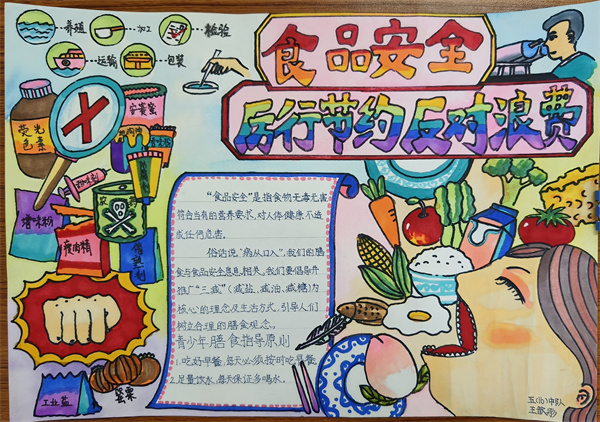 养殖
加工
检验
运输
包装
食品安全
厉行节约 反对浪费
荧光
色素
安赛蜜
农药
增味粉
瘦肉精
工业盐
罂粟
“食品安全”是指食物无毒无害，
符合当有的营养要求，对人体健康不造
成任何危害。
俗话说“病从口入”，我们的膳
食与食品安全息息相关，我们要倡导开
推广“三减”（减盐、减油、减糖）为
核心的理念及生活方式，引导人们
树立合理的膳食观念。
青少年膳食指导原则
1.吃好早餐，每天必须按时吃早餐
2.足量饮水，每天保证多喝水。